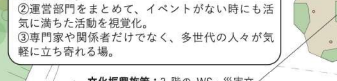 ②運営部門をまとめて、イベントがない時にも活
気に満ちた活動を視覚化。
③専門家や関係者だけでなく、多世代の人々が気
軽に立ち寄れる場。